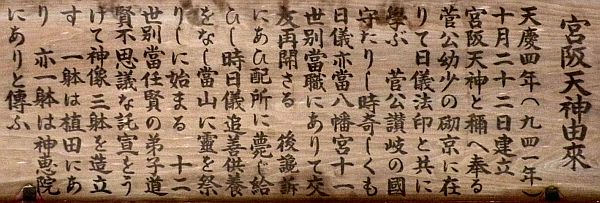 宮阪天神由来
天慶四年(九四一年)
十月二十三日建立
宮阪天神と稱へ奉る
菅公幼少の砌京に在
りて日儀法印と共に
學ぶ 菅公讃岐の國
守たりし時奇しくも
日儀亦當八幡宮十一
世別當職にありて交
友再開さる 後讒訴
にあひ配所に薨し給
ひし時日儀追善供養
をなし當山に靈を祭
りしに始まる 十二
世別當任賢の弟子道
賢不思議な託宣をう
けて神像三躰を造立
す 一躰は植田にあ
り 亦一躰は神恵院
にありと傳ふ